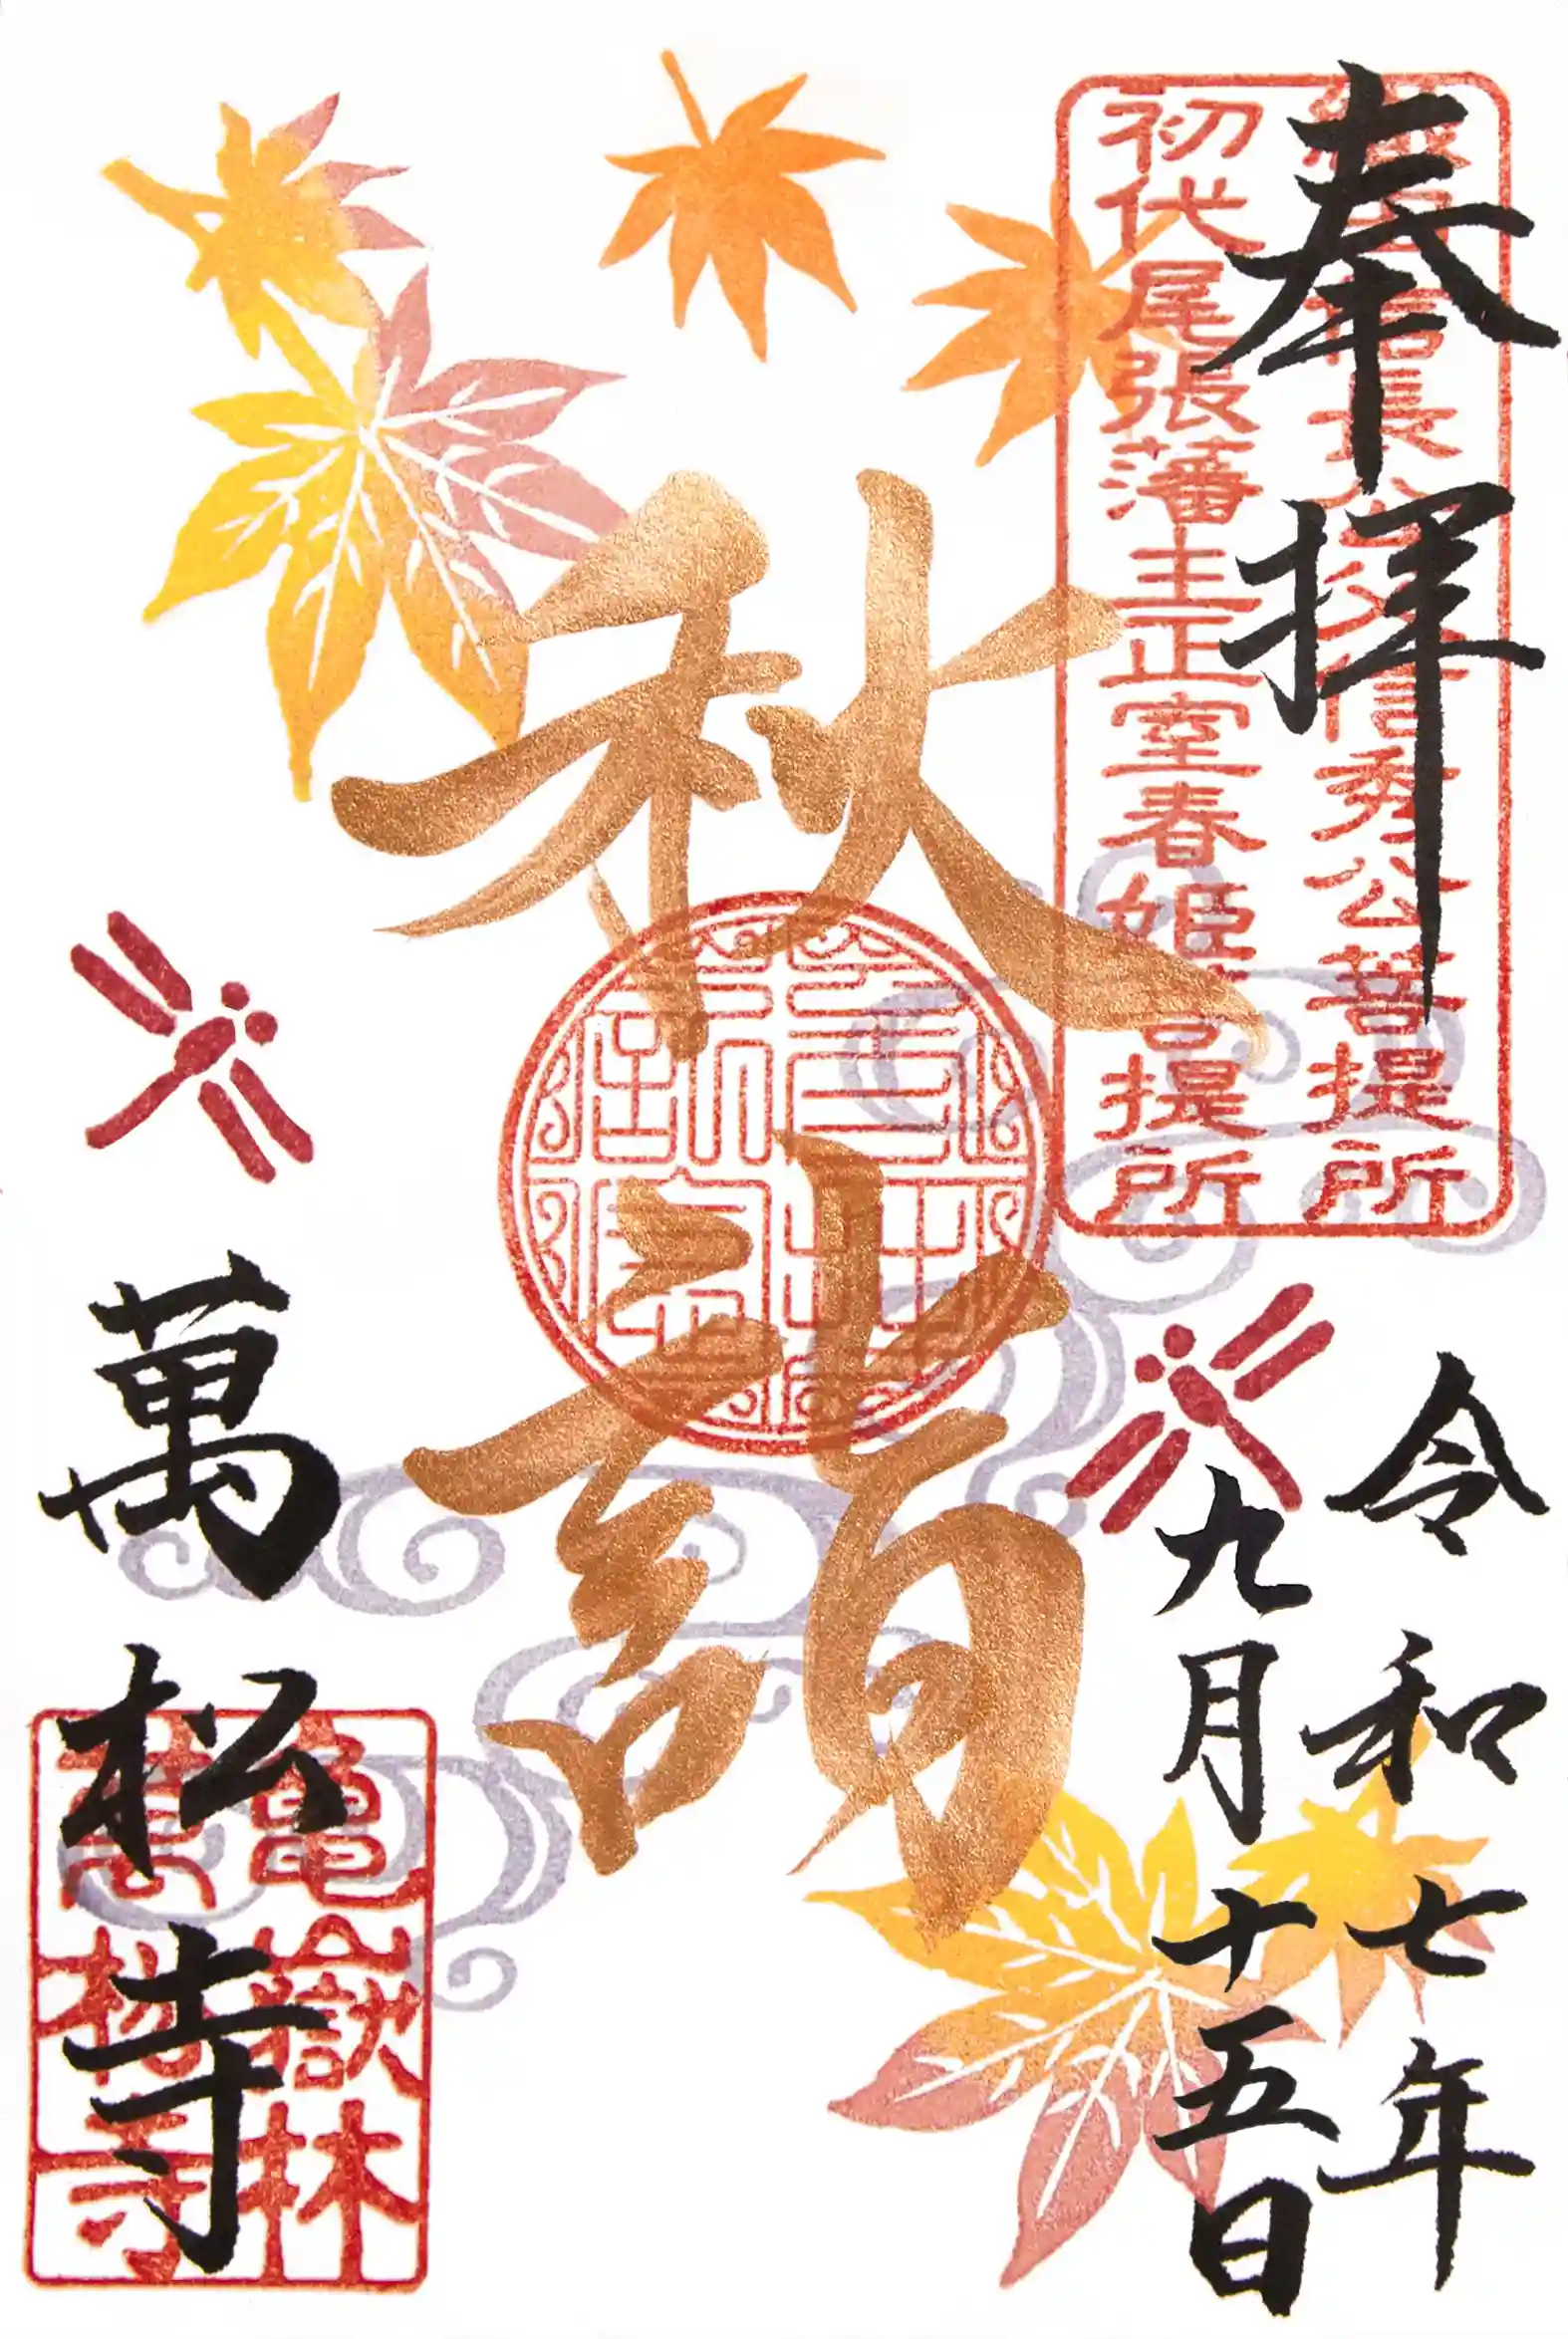 奉拝
織田信長公父信秀公菩提所
初代尾張藩主正室春姫菩提所
令和七年
九月十五日
秋詣
亀嶽林
萬松寺
萬松寺